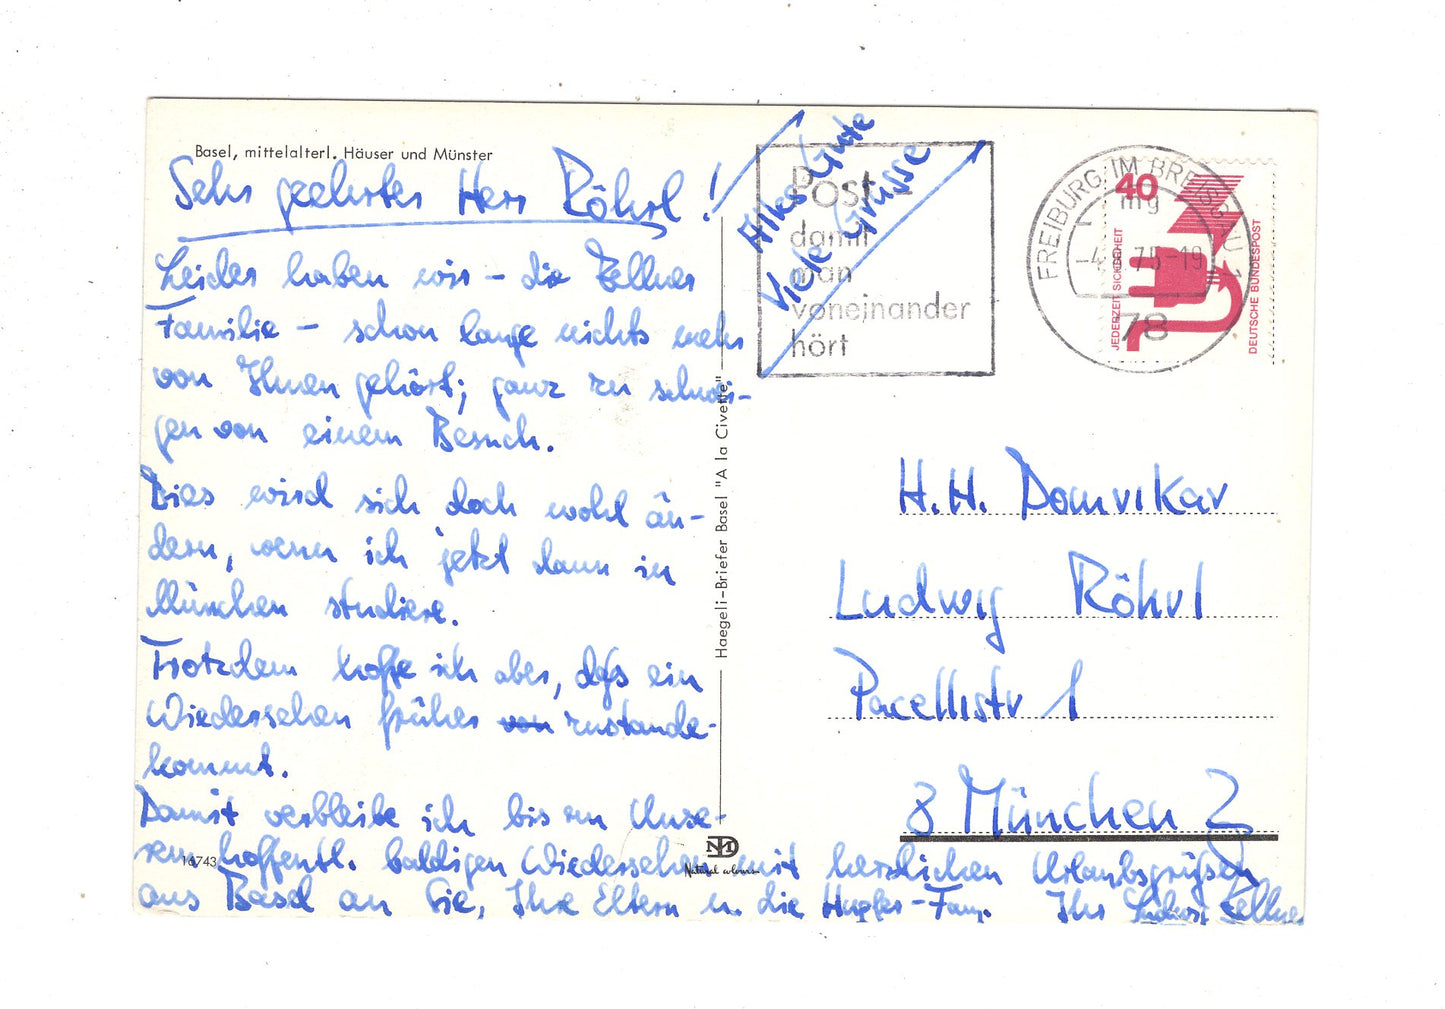 Basel, mittelalterl. Häuser und Münster
Sehr geehrter Herr Röhrl!
Leider haben wir – die Zellner
Familie – schon lange nichts mehr
von Ihnen gehört; ganz zu schwei-
gen von einem Besuch.
Dies wird sich doch wohl än-
dern, wenn ich jetzt dann in
München studiere.
Trotzdem hoffe ich aber, daß ein
Wiedersehen früher von zustande-
kommt.
Damit verbleibe ich bis zu Unse-
rem hoffentl. baldigen Wiedersehen mit herzlichen Urlaubsgrüßen
aus Basel an Sie, Ihre Eltern u. die Hupfer-Fam. Ihr Zellner
Alles Gute
Viele Grüsse
16743
Haegeli-Briefer Basel "A la Civette"
Natural colours
Post –
damit
man
voneinander
hört
FREIBURG IM BREISGAU 1
mg
-4. 75-19
78
40
JEDERZEIT SICHERHEIT
DEUTSCHE BUNDESPOST
H.H. Domvikar
Ludwig Röhrl
Pacellistr 1
8 München 2